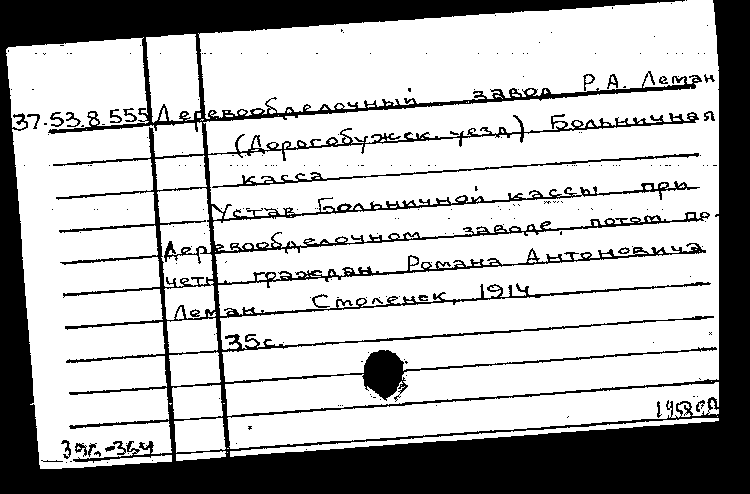 37.53.8.555 Деревообделочный завод Р.А. Леман
(Дорогобужск. уезд). Больничная
касса
Устав Больничной кассы при
Деревообделочном заводе, потом. по-
четн. граждан. Романа Антоновича
Леман. Смоленск, 1914.
35с.